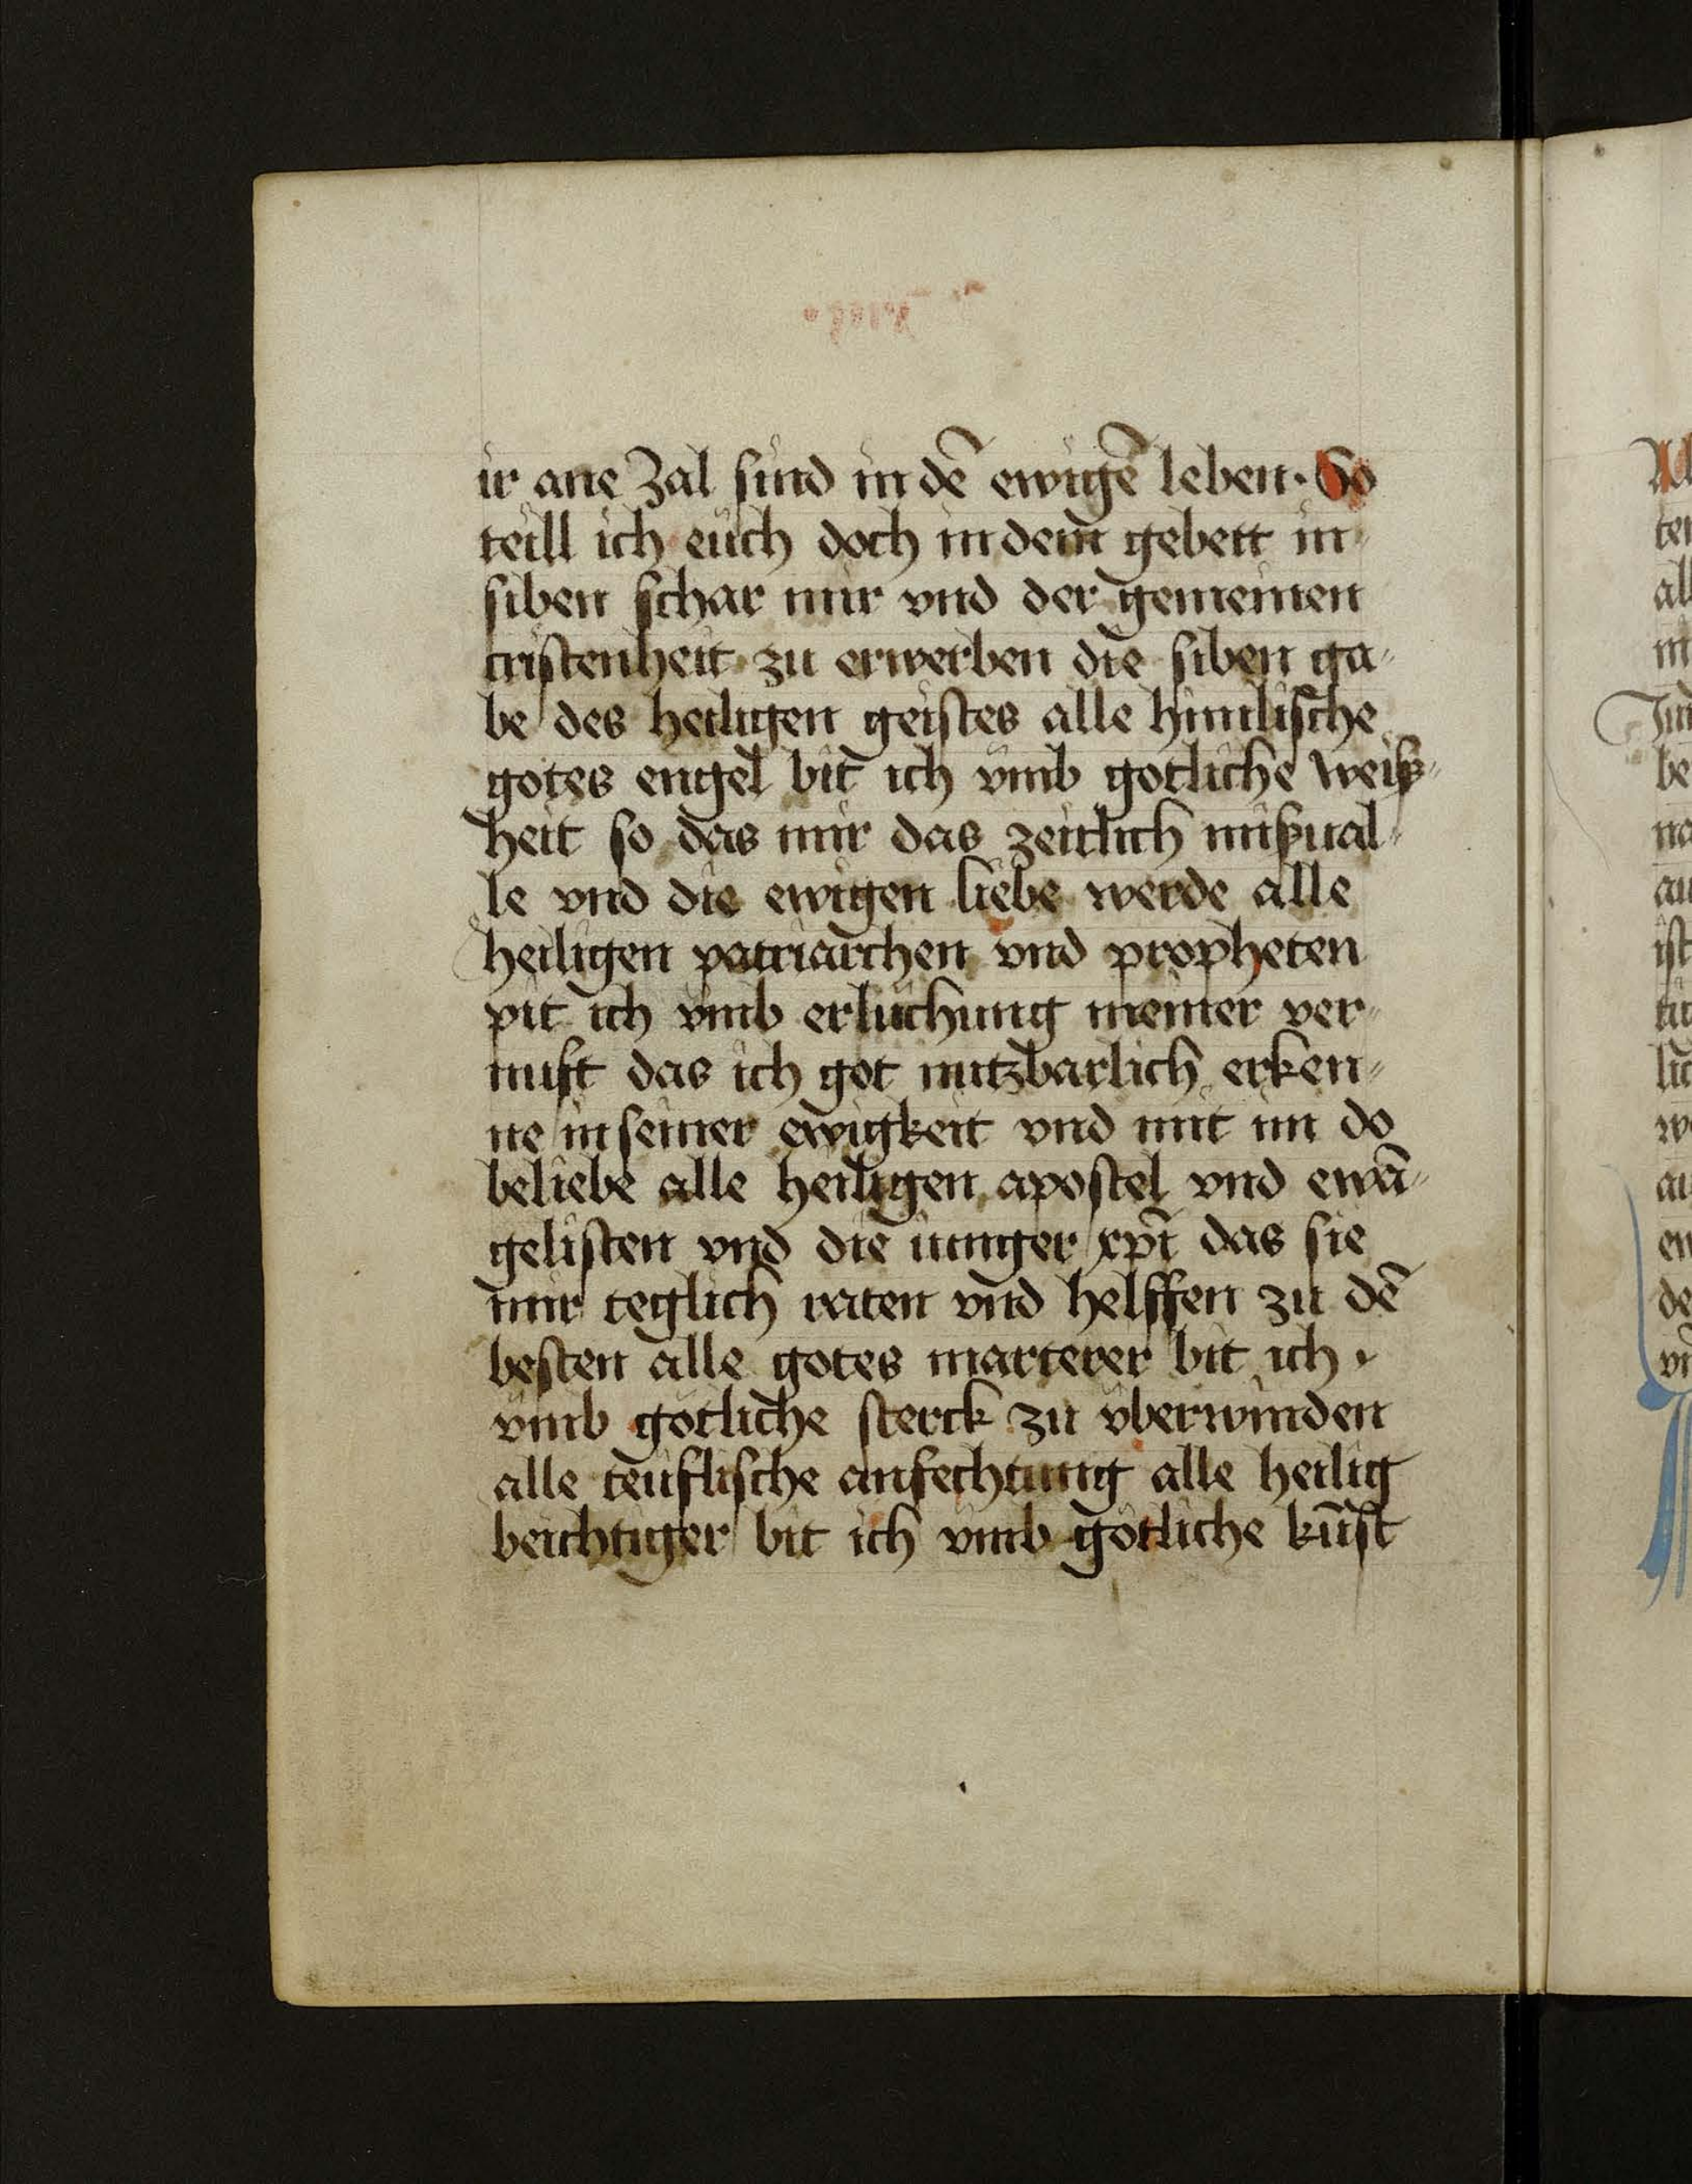 ir ane Zal sind in dē ewigē leben · So
teill ich euch doch in dem gebett in
siben schar mir vnd der gemeinen
cristenheit zu erwerben die siben ga⸗
be des heiligen geistes alle himlische
gotes engel bit ich vmb gotliche weiß⸗
heit so das mir das zeitlich mißual⸗
le vnd die ewigen liebe werde alle
heiligen patriarchen vnd propheten
pit ich vmb erluchung meiner ver⸗
nuft das ich got nutzbarlich erken⸗
ne in seiner ewigkeit vnd mit im do
beliebe alle heiligen apostel vnd ewā⸗
gelisten vnd die iunger xp̄i das sie
mir teglich raten vnd helffen zu dē
besten alle gotes marterer bit ich ·
vmb götliche sterck zu vberwinden
alle teuflische anfechtung alle heilig
beichtiger bit ich vmb götliche kūst